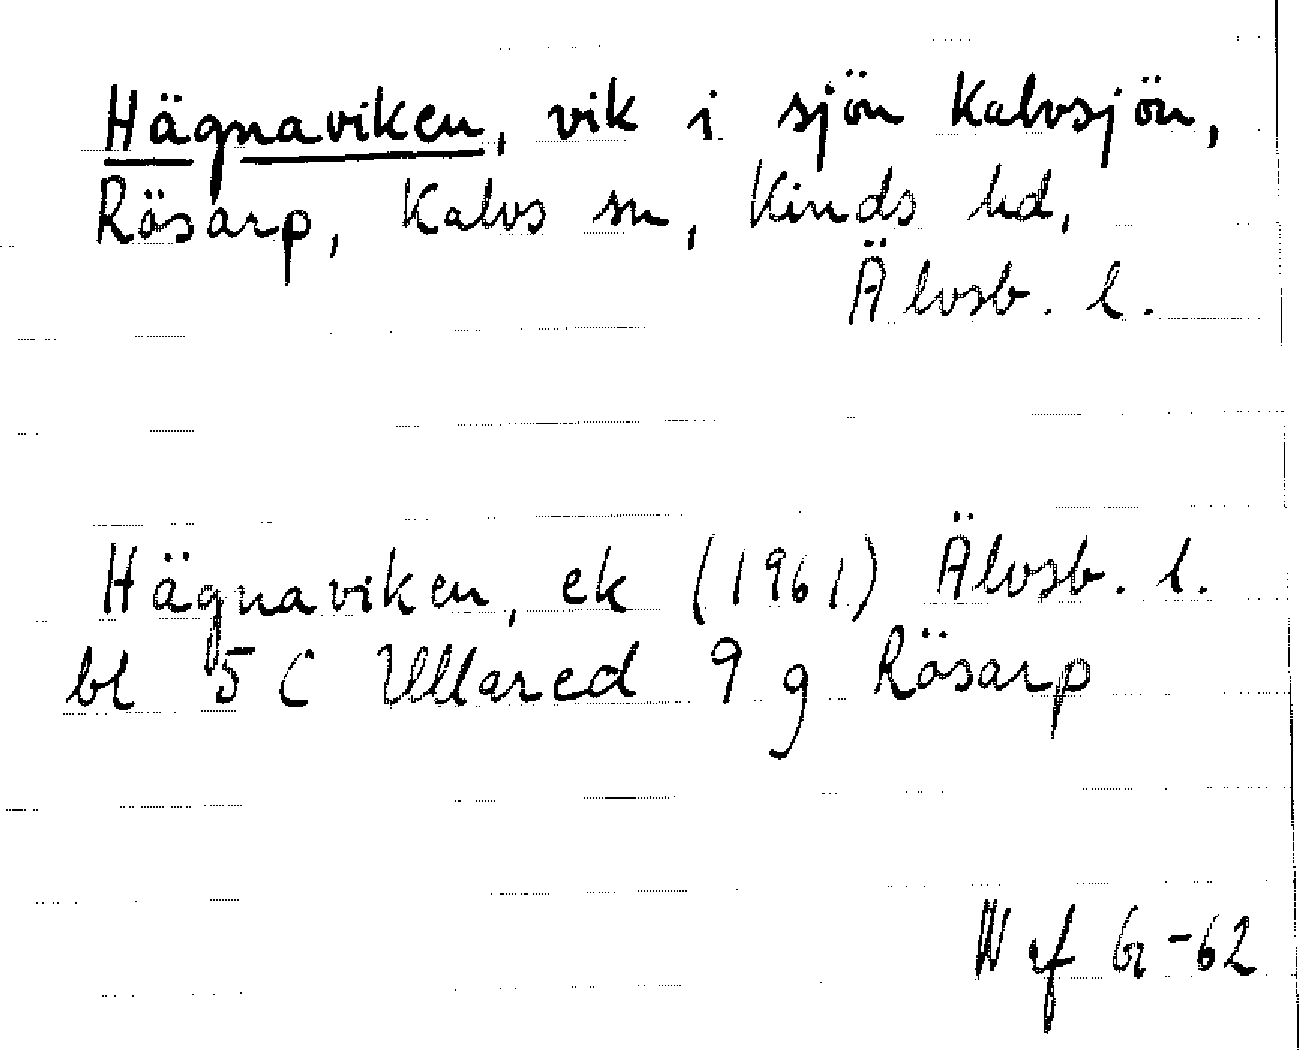 Hägnaviken, vik i sjön Kalvsjön,
Räsarp, Kalvs sn, Kinds hd,
Älvsb. l.
Hägnaviken, ek (1961) Älvsb. l.
bl 5 C Ullared 9 g Räsarp
62